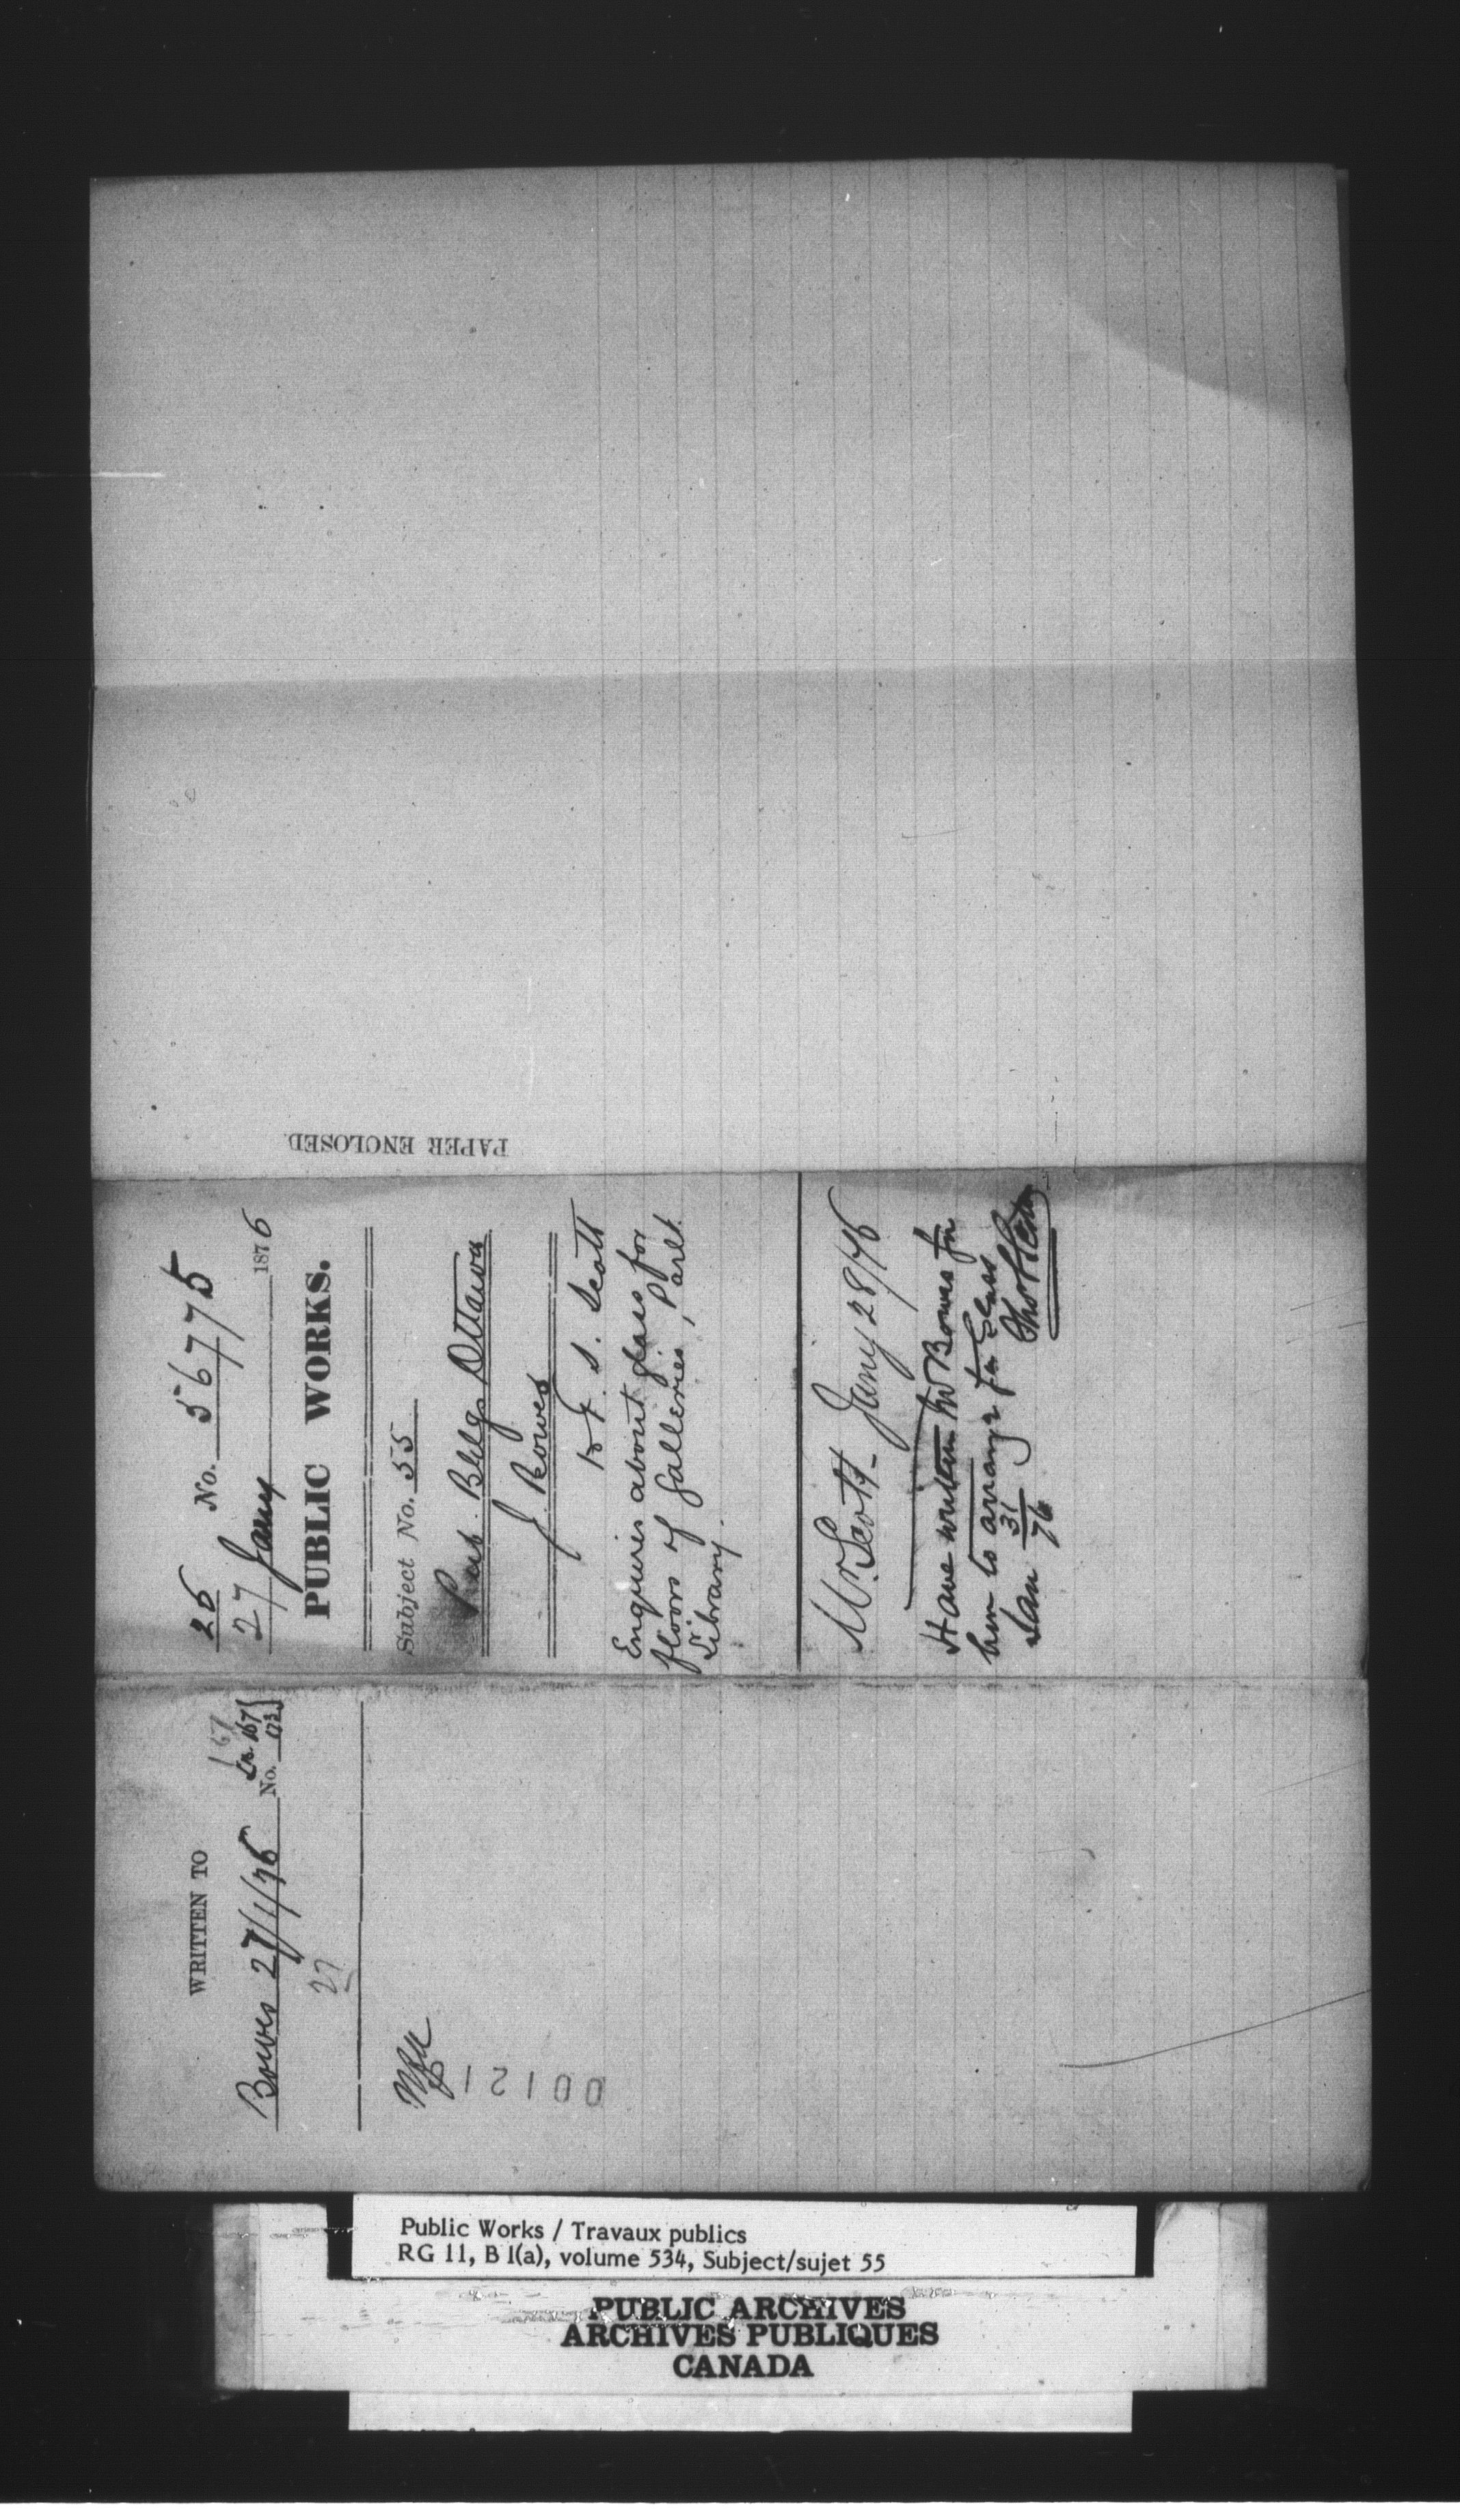 26 No. 56775
27 Jany 1876
PUBLIC WORKS.
Subject No. 55
Pub. Bldgs Ottawa
J. Bowes
S. Scott
Enquires about glass for
floors of Galleries, Parlt.
Library.
Mr. Scott - Jany 28/76
Have written Mr Bowes for
him to arrange for Glass
Jan 31
76
PAPER ENCLOSED.
WRITTEN TO
167
Bowes 27/1/76 No. 167
173
27
00121
Public Works / Travaux publics
RG 11, B 1(a), volume 534, Subject/sujet 55
PUBLIC ARCHIVES
ARCHIVES PUBLIQUES
CANADA